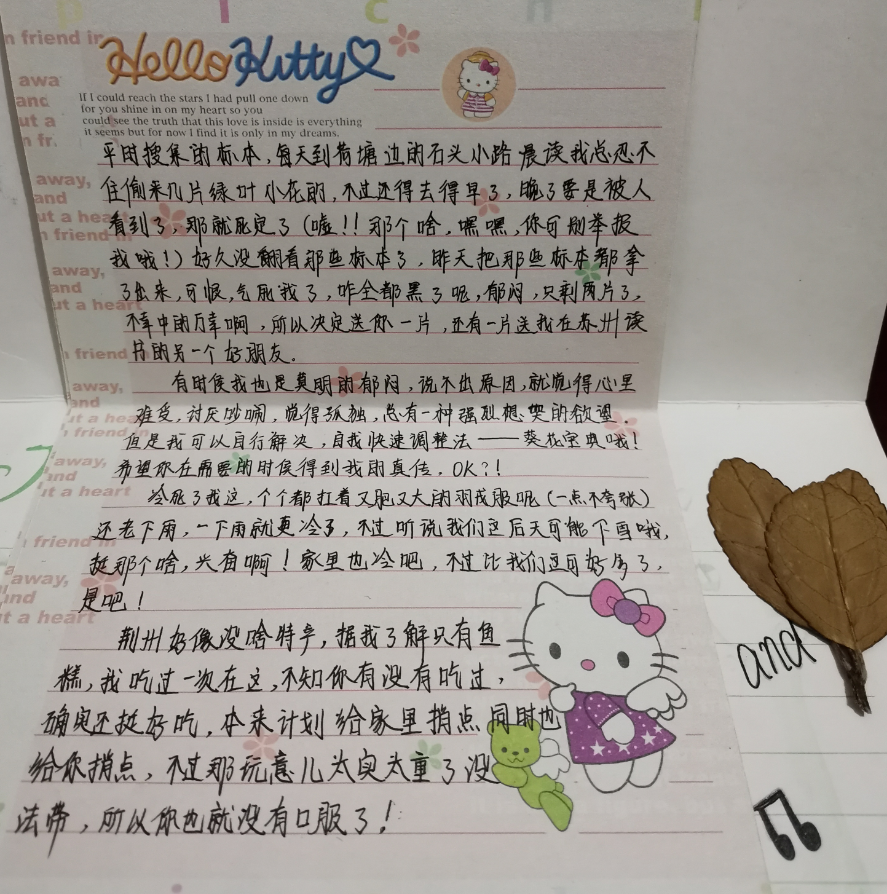 n friend in
Hello Kitty
awa
and
ut a
n fr.
If I could reach the stars I had pull one down
for you shine in on my heart so you
could see the truth that this love is inside is everything
it seems but for now I find it is only in my dreams.
平时搜集的标本，每天到荷塘边的石头小路晨读我总忍不
住偷采几片绿叶小花的，不过还得去得早了，晚了要是被人
看到了，那就死定了（嘘！！那个啥，嘿嘿，你可别举报
我哦！）好久没翻看那些标本了，昨天把那些标本都拿
了出来，可恨，气死我了，咋全都黑了呢，郁闷，只剩两片了，
不幸中的万幸啊，所以决定送你一片，还有一片送我在苏州读
书的另一个好朋友。
有时侯我也是莫明的郁闷，说不出原因，就觉得心里
难受，讨厌吵闹，觉得孤独，总有一种强烈想哭的欲望．
但是我可以自行解决，自我快速调整法——葵花宝典哦！
希望你在需要的时侯得到我的真传．OK？！
冷死了我这，个个都扛着又肥又大的羽戎服呢（一点不夸张）
还老下雨，一下雨就更冷了，不过听说我们这后天可能下雪哦，
挺那个啥，兴奋啊！家里也冷吧，不过比我们这可好多了，
是吧！
荆州好像没啥特产，据我了解只有鱼
糕，我吃过一次在这，不知你有没有吃过，
确实还挺好吃，本来计划给家里捎点同时也
给你捎点，不过那玩意儿太臭太重了没
法带，所以你也就没有口服了！
away,
and
ut a heart
n friend in
away,
and
ut a heart
friend in
away,
and
ut a heart
friend in
away,
and
ut a heart
friend in
away,
and
t a heart
and